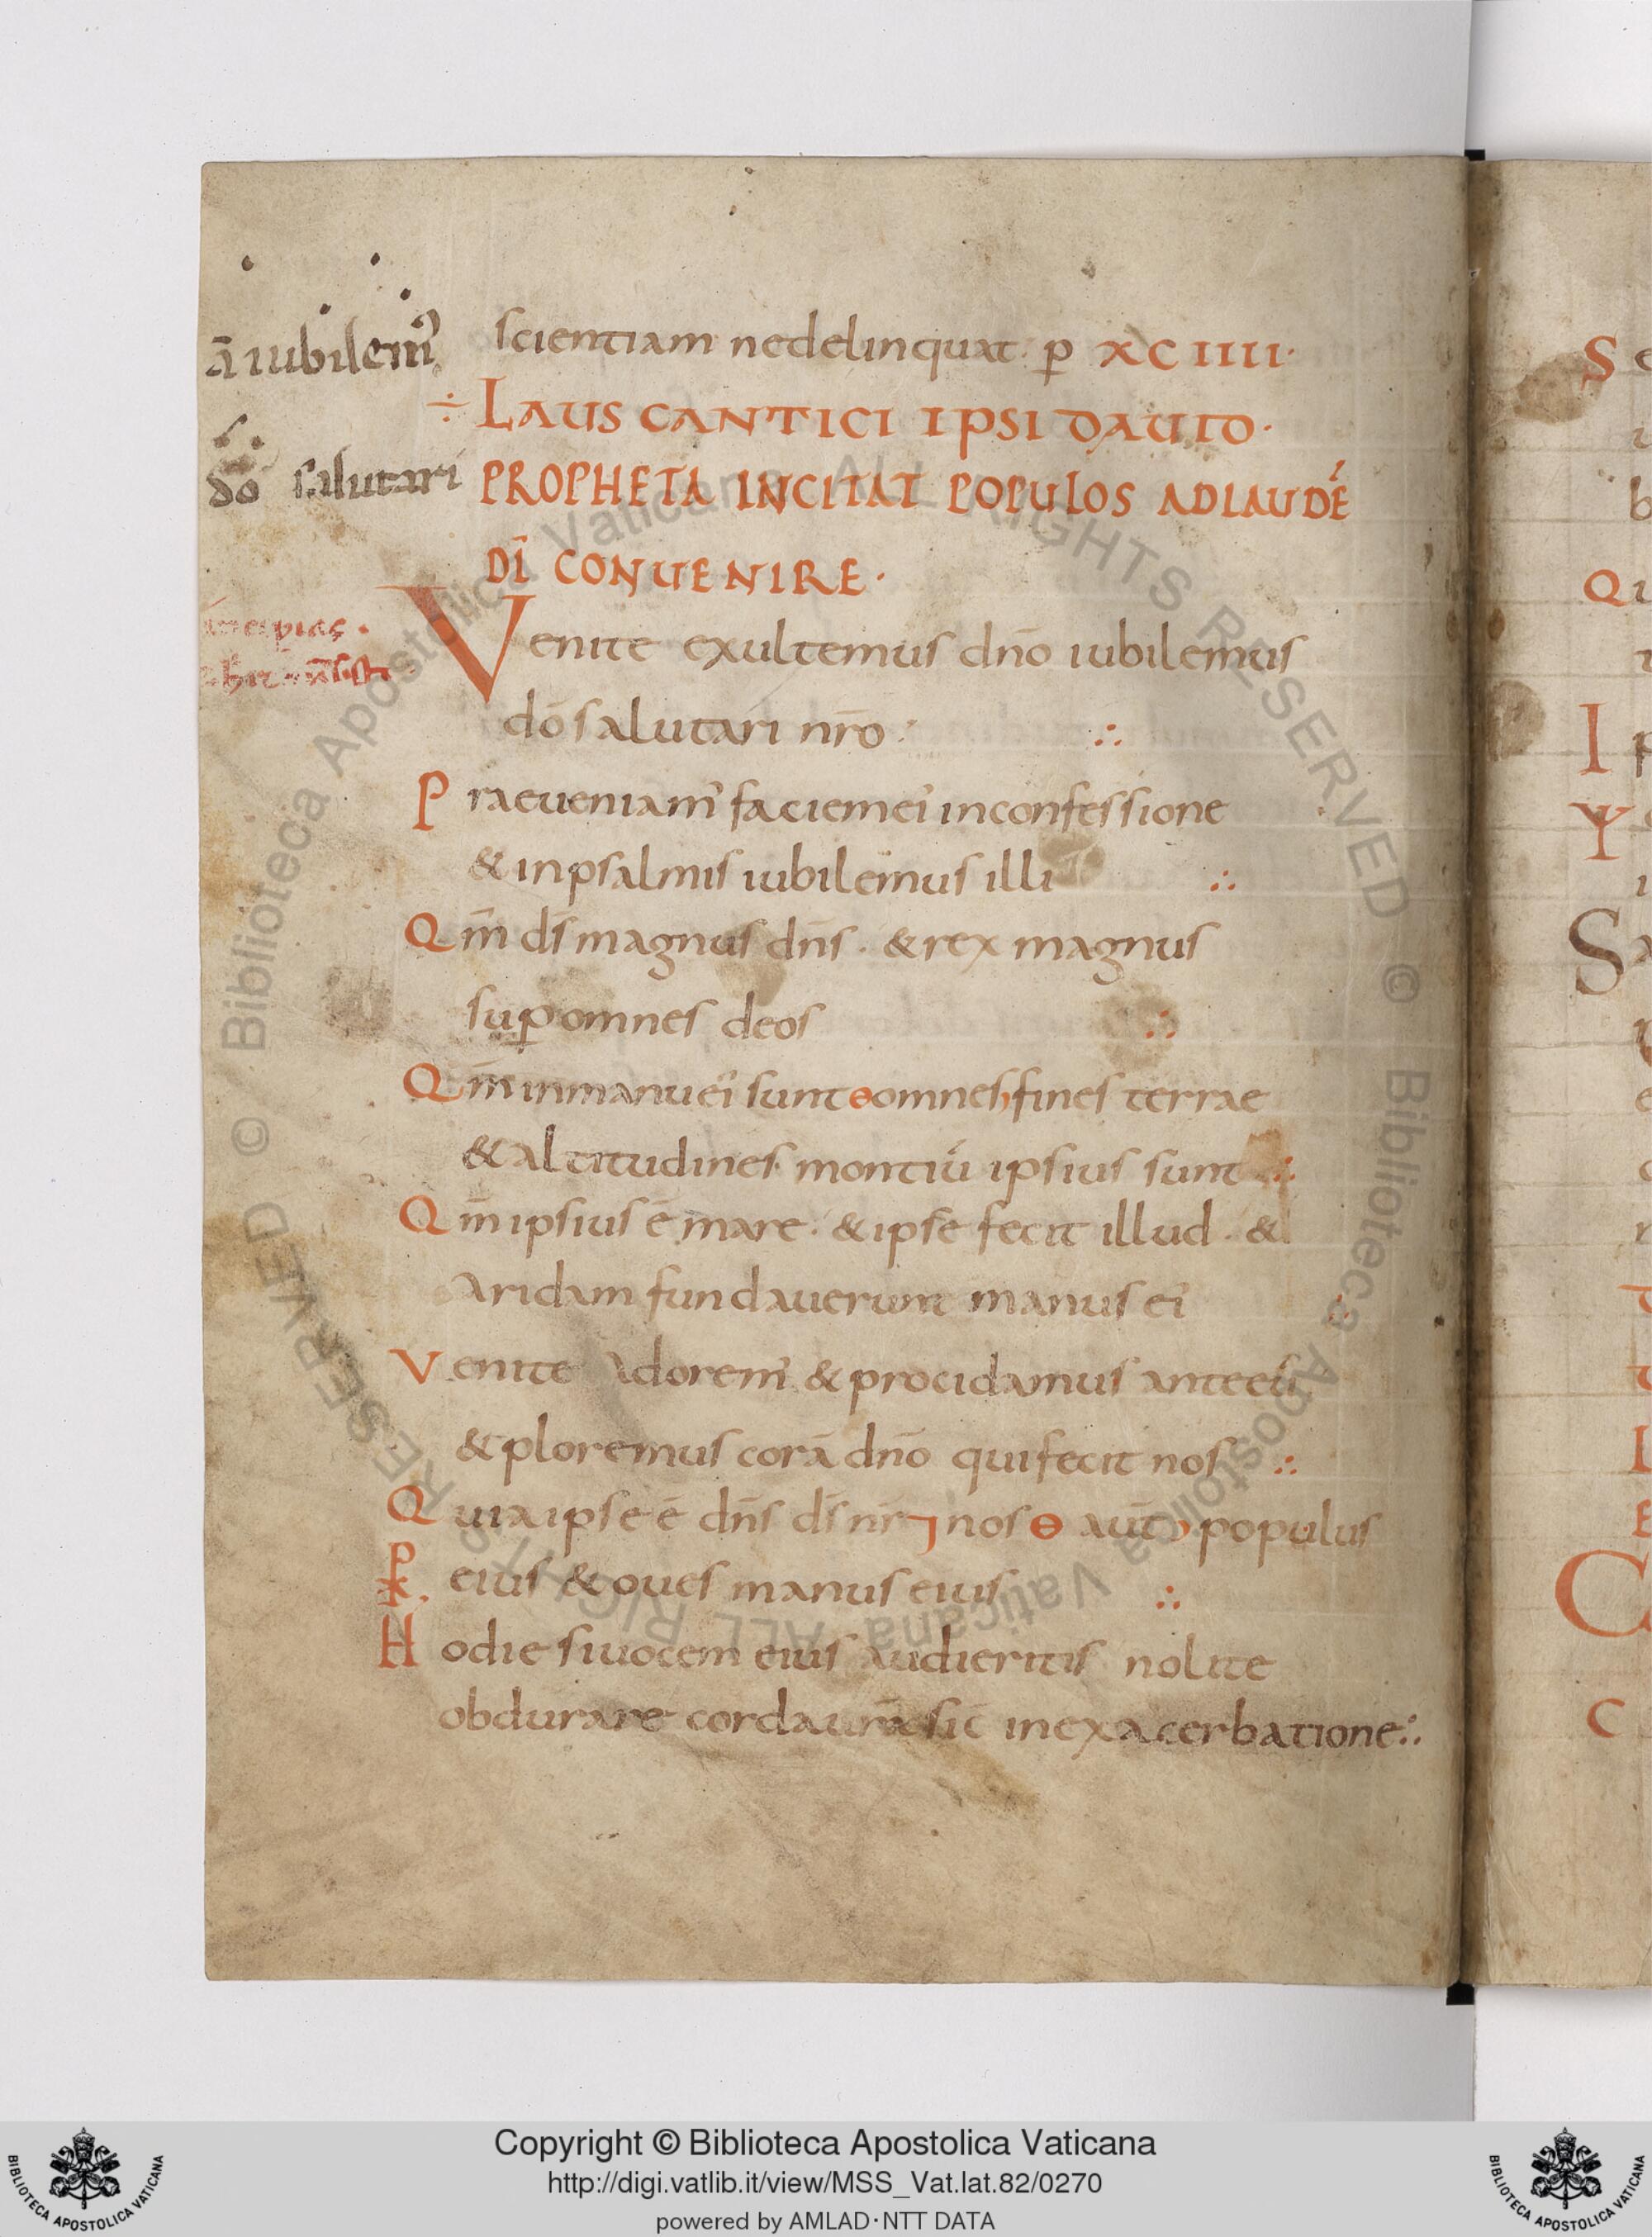 ā iubilem᾿
scientiam nedelinquat. ꝑ XCIIII·
÷ LAUS CANTICI IPSI DAUID·
dō salutari
PROPHETA INCITAT POPULOS ADLAUDĒ
DĪ CONUENIRE·
Venite exultemus dn̄o iubilemus
dō salutari nr̄o ∴
Praeueniam᾿ faciem ei᾿ inconfessione
& inpsalmis iubilemus illi ∴
Qm̄ ds̄ magnus dn̄s· & rex magnus
suꝑ omnes deos ∴
Qm̄ inmanu ei᾿ sunt ɵ omnes, fines terrae
& altitudines montiū ipsius sunt ∴
Qm̄ ipsius ē mare· & ipse fecit illud· &
Aridam fundauerunt manus ei᾿ ∴
Venite Adorem᾿ & procidamus ante eū
& ploremus corā dn̄o qui fecit nos ∴
Quia ipse ē dn̄s ds̄ nr̄ nos ɵ aūt populus
eius & oues manus eius ∴
Hodie siuocem eius Audieritis nolite
obdurare corda ur̄a sic̄ inexacerbatione ∴
© Biblioteca Apostolica Vaticana ALL RIGHTS RESERVED © Biblioteca Apostolica Vaticana ALL RIGHTS RESERVED
Copyright © Biblioteca Apostolica Vaticana
http://digi.vatlib.it/view/MSS_Vat.lat.82/0270
powered by AMLAD·NTT DATA
BIBLIOTECA APOSTOLICA VATICANA
BIBLIOTECA APOSTOLICA VATICANA